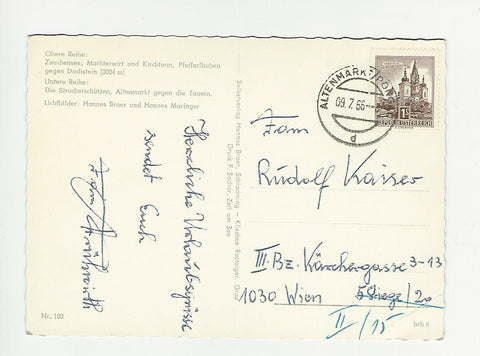 Obere Reihe:
Zauchensee, Markterwirt und Kirchturm, Pfeiferlbuben
gegen Dachstein (3004 m)
Untere Reihe:
Die Struckerschützen, Altenmarkt gegen die Tauern.
Lichtbilder: Hannes Broer und Hannes Maringer
Herzliche Urlaubsgrüsse
sendet Euch
Fam.
Nr. 180
Selbstverlag Hannes Broer, Schladming - Klischee Rosteiger, Graz
Druck F. Sochor, Zell am See
ALTENMARKT/PON
09.7.66
d
1S
REPUBLIK ÖSTERREICH
Fam
Rudolf Kaiser
III. Bz. Kärchergasse 3-13
1030 Wien Stiege/20
II/15
brb 6